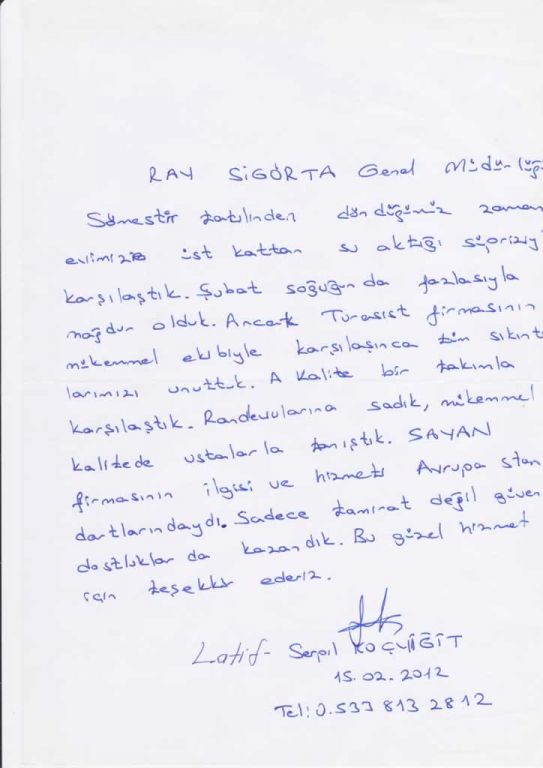 RAY SİGORTA Genel Müdürlüğü
Sömestir tatilinden döndüğümüz zaman
evimizin üst kattan su aktığı süpriziy
karşılaştık. Şubat soğuğunda fazlasıyla
mağdur olduk. Ancak Turasist firmasının
mükemmel ekibiyle karşılaşınca tüm sıkıntı
larımızı unuttuk. A kalite bir takımla
karşılaştık. Randevularına sadık, mükemmel
kalitede ustalarla tanıştık. SAYAN
firmasının ilgisi ve hizmeti Avrupa stan
dartlarındaydı. Sadece tamirat değil güven
dostluklar da kazandık. Bu güzel hizmet
için teşekkür ederiz.
Latif- Serpil KOÇYİĞİT
15.02.2012
Tel: 0.533 813 28 12